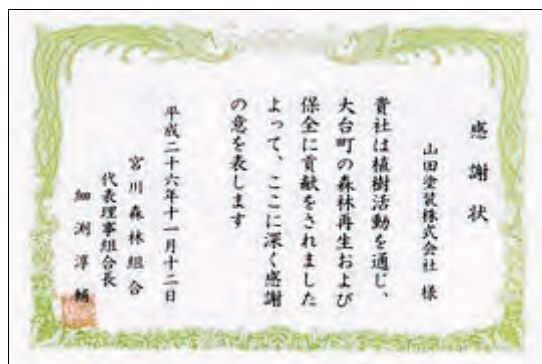 感謝状
山田塗装株式会社 様
貴社は植樹活動を通じ、
大台町の森林再生および
保全に貢献をされました
よって、ここに深く感謝
の意を表します
平成二十六年十一月十二日
宮川森林組合
代表理事組合長
細渕淳輔